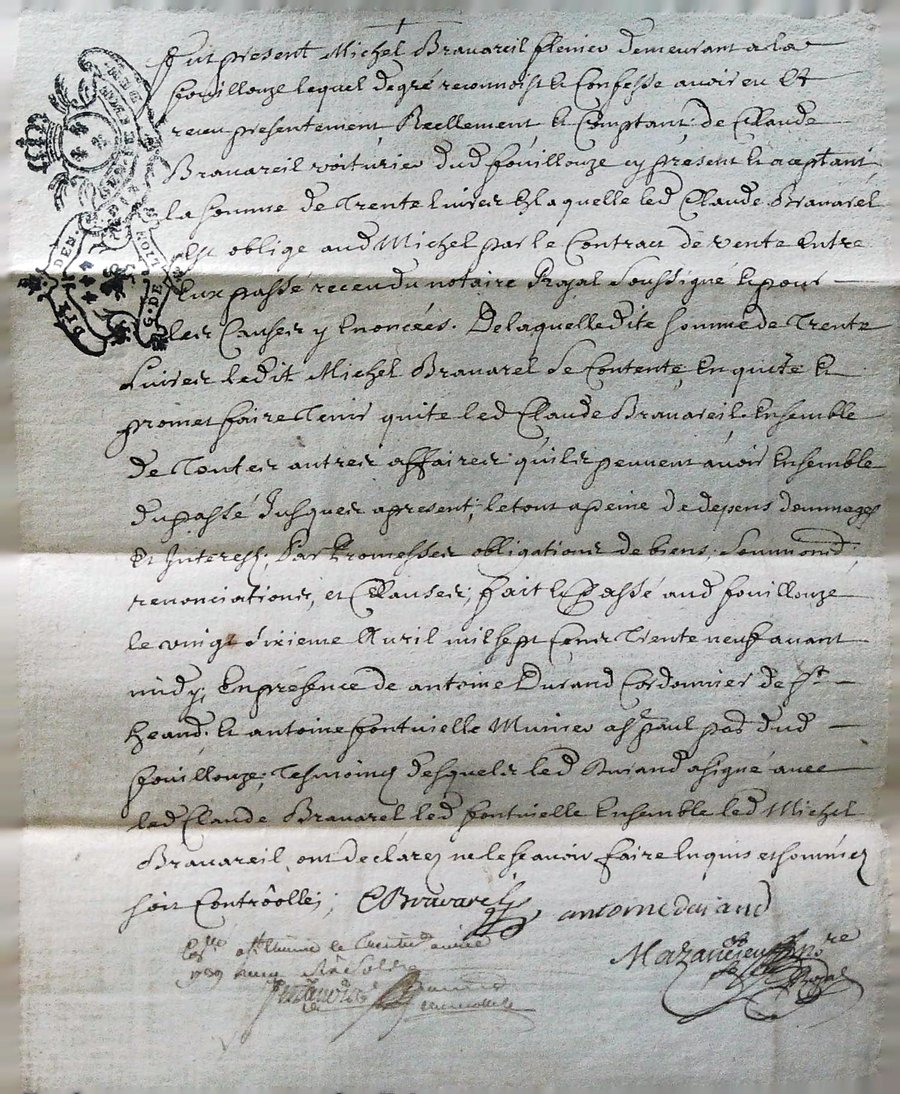 Fut present Michel Bravareil demeurant a la
fouillouze lequel de gré reconnoist et Confesse avoir eu Et
receu presentement Reellement et Comptant de Claude
Bravareil voiturier dud fouillouze cy present et aceptant
la somme de Trente livres Ez laquelle led Claude Bravarel
est oblige aud Michel par le Contract de vente Entre
Eux passé receu du notaire Royal Soussigné Et pour
les Causes y Enoncées. De laquelle dite somme de Trente
livres ledit Michel Bravarel Se Contente En quitte Et
promet faire Tenir quite led Claude Bravareil. Ensemble
de Toutes autres affaires quils peuvent avoir Ensemble
du passé Jusques apresent; le tout a peine de depens dommages
et Interest; Par Promesses obligations de biens, Soumond;
renonciations, et Clauses; fait Et Passé aud fouillouze
le vingt sixieme Avril mil sept Cens Trente neuf avant
midy; En présence de antoine Durand Cordonnier de St
heand. et antoine fontvielle Munier a St paul dud
fouillouze; Tesmoins desquels led Durand a signé avec
led Claude Bravarel led fontvielle Ensemble led Michel
Bravareil, ont declarez ne le scavoir faire Enquis et sommez
soit Contrôollé; CBravarel
antoine durand
Royal